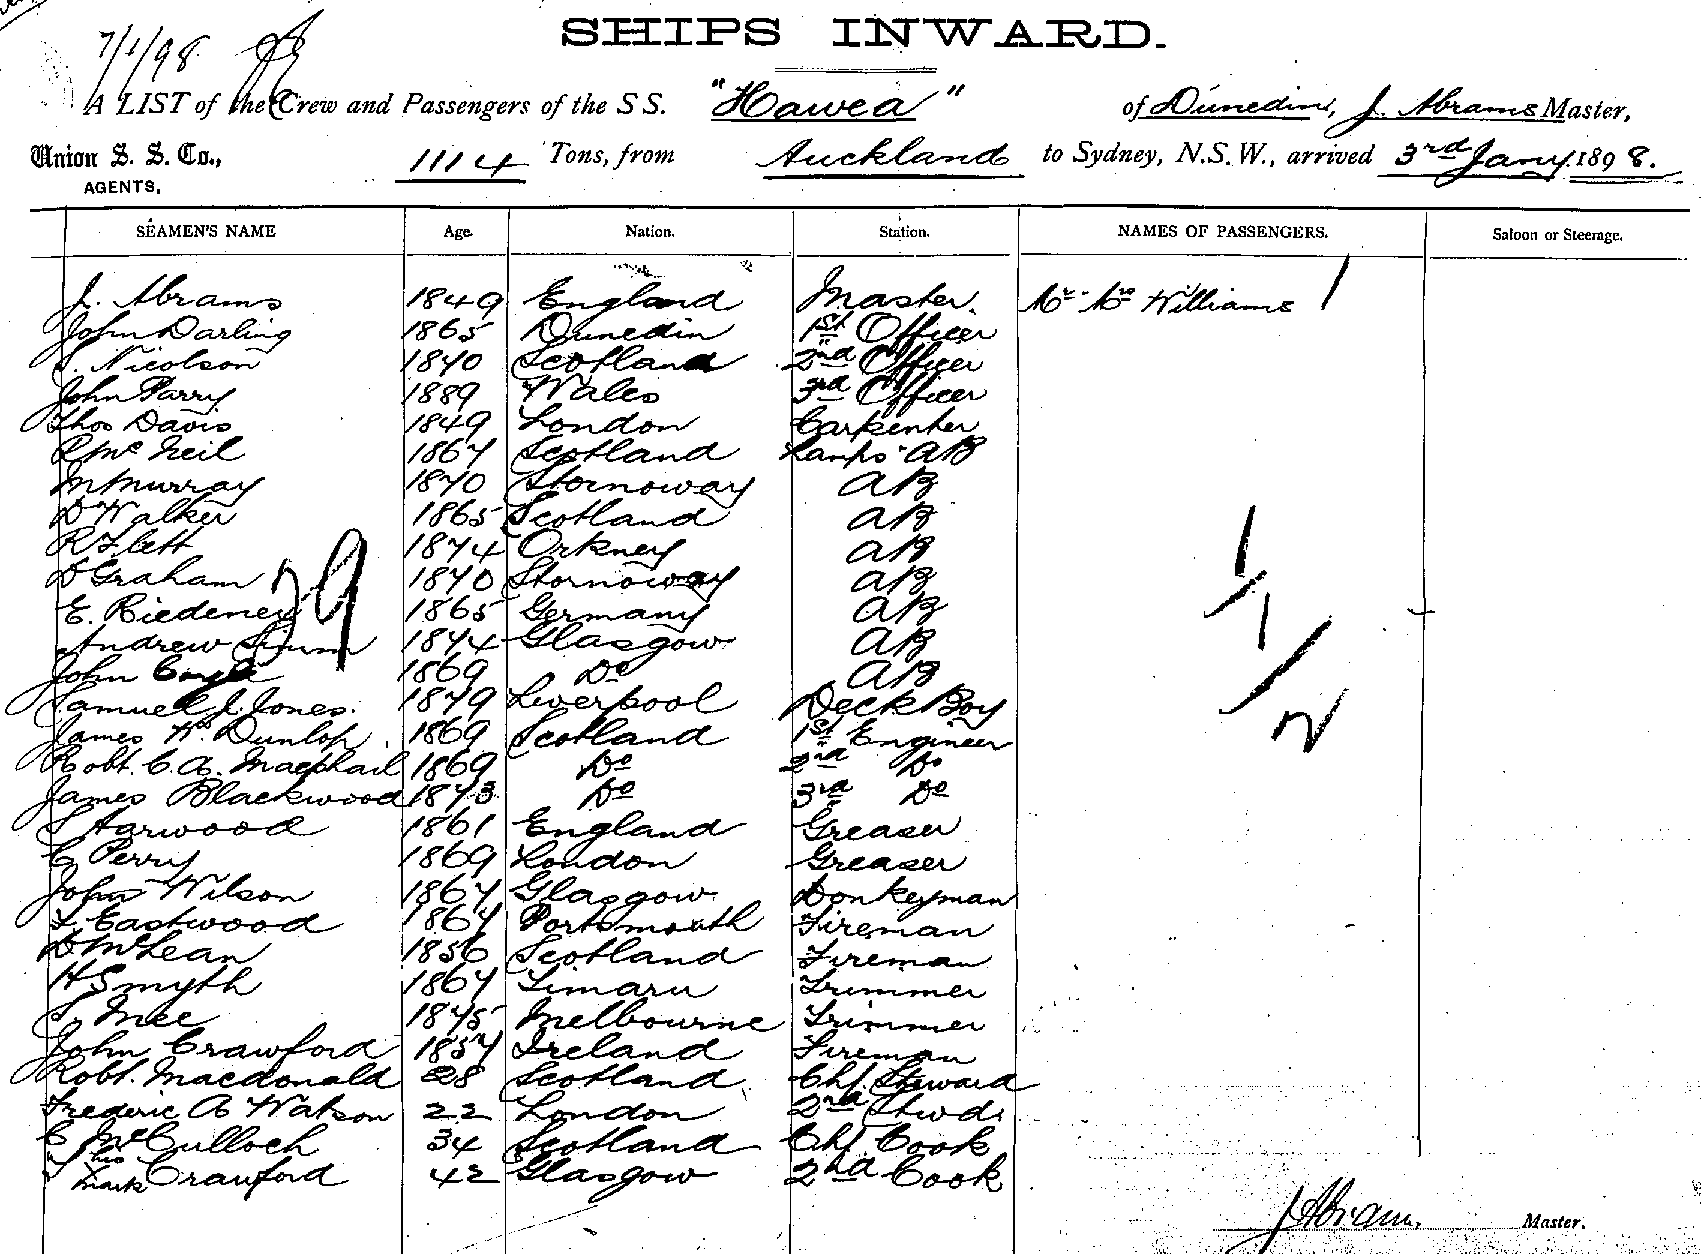 SHIPS INWARD.
7/1/98
A LIST of the Crew and Passengers of the SS. "Hawea" of Dunedin, J. Abrams Master,
Union S. S. Co., 1114 Tons, from Auckland to Sydney, N.S.W., arrived 3rd Jany. 1898.
AGENTS,
SEAMEN'S NAME Age. Nation. Station. NAMES OF PASSENGERS. Saloon or Steerage.
J. Abrams 1849 England Master. Mr. Mrs Williams 1
John Darling 1865 Dunedin 1st Officer
S. Nicolson 1870 Scotland 2nd Officer
John Parry 1889 Wales 3rd Officer
Thos Davis 1849 London Carpenter
R Mc Neil 1867 Scotland Lamps AB
M Murray 1870 Stornoway AB
D Walker 1865 Scotland AB
R Flett 1874 Orkney AB
D Graham 1870 Stornoway AB
29
E. Riedener 1865 Germany AB
Andrew 1874 Glasgow AB
John 1869 Do AB
Samuel J. Jones. 1879 Liverpool Deck Boy
James W. Dunlop. 1869 Scotland 1st Engineer
2
Robt. C. A. Macphail 1869 Do 2nd Do
James Blackwood 1873 Do 3rd Do
S Harwood 1861 England Greaser
C Perry 1869 London Greaser
John Wilson 1867 Glasgow Donkeyman
Eastwood 1867 Portsmouth Fireman
D McLean 1856 Scotland Fireman
H Smyth 1867 Timaru Trimmer
S. Mee 1875 Melbourne Trimmer
John Crawford 1857 Ireland Fireman
Robt. Macdonald 28 Scotland Chf. Steward
Frederic A Watson 22 London 2nd Stwd.
C McCulloch 34 Scotland Chf Cook
his mark Crawford 42 Glasgow 2nd Cook
J Abrams. Master.